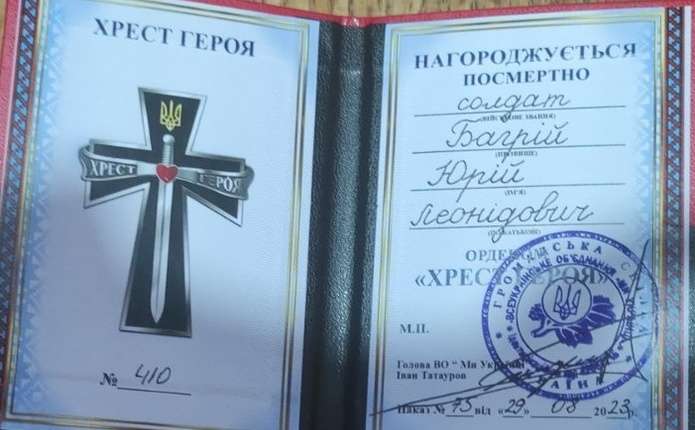 ХРЕСТ ГЕРОЯ
ХРЕСТ ГЕРОЯ
№ 410
НАГОРОДЖУЄТЬСЯ
ПОСМЕРТНО
солдат
(ВІЙСЬКОВЕ ЗВАННЯ)
Багрій
(ПРІЗВИЩЕ)
Юрій
(ІМ'Я)
Леонідович
ОРДЕНОМ
«ХРЕСТ ГЕРОЯ»
ГРОМАДСЬКА
ВСЕУКРАЇНСЬКЕ ОБ'ЄДНАННЯ
М.П.
Голова ВО " Ми
Іван Татауров
Наказ № 73 від «29» 08 2023р.